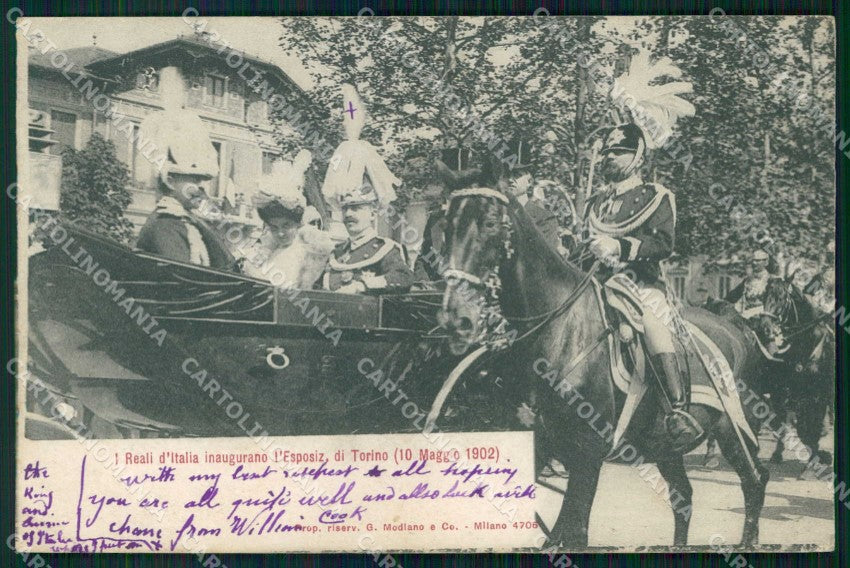 I Reali d'Italia inaugurano l'Esposiz. di Torino (10 Maggio 1902)
with my best respect to all hopeing
you are all quite well and also luck with
chance from William Cook
Prop. riserv. G. Modiano e Co. - Milano 4706
the
King
and
of Italy
CARTOLINOMANIA